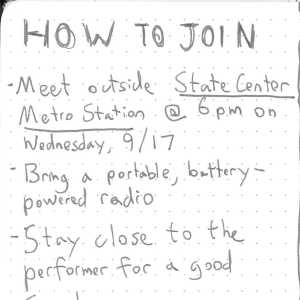 HOW TO JOIN
- Meet outside State Center
Metro Station @ 6pm on
Wednesday, 9/17
- Bring a portable, battery-
powered radio
- Stay close to the
performer for a good